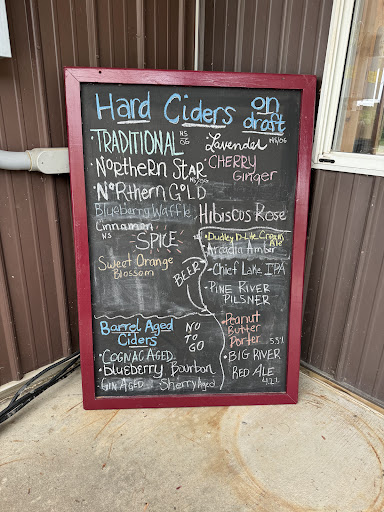 Hard Ciders on draft
TRADITIONAL NS GG
Lavender NS/OG
Northern Star
CHERRY Ginger
Northern Gold
Blueberry Waffle
Hibiscus Rose
Cinnamon SPICE NS
Sweet Orange Blossom
BEER
Dudley D-Lite Cream Ale
Arcadia Amber
Chief Lake IPA
PINE RIVER PILSNER
Peanut Butter Porter 5.5%
BIG RIVER RED ALE 4.2%
Barrel Aged Ciders
NO TO GO
COGNAC AGED
Blueberry Bourbon
GIN AGED
Sherry Aged